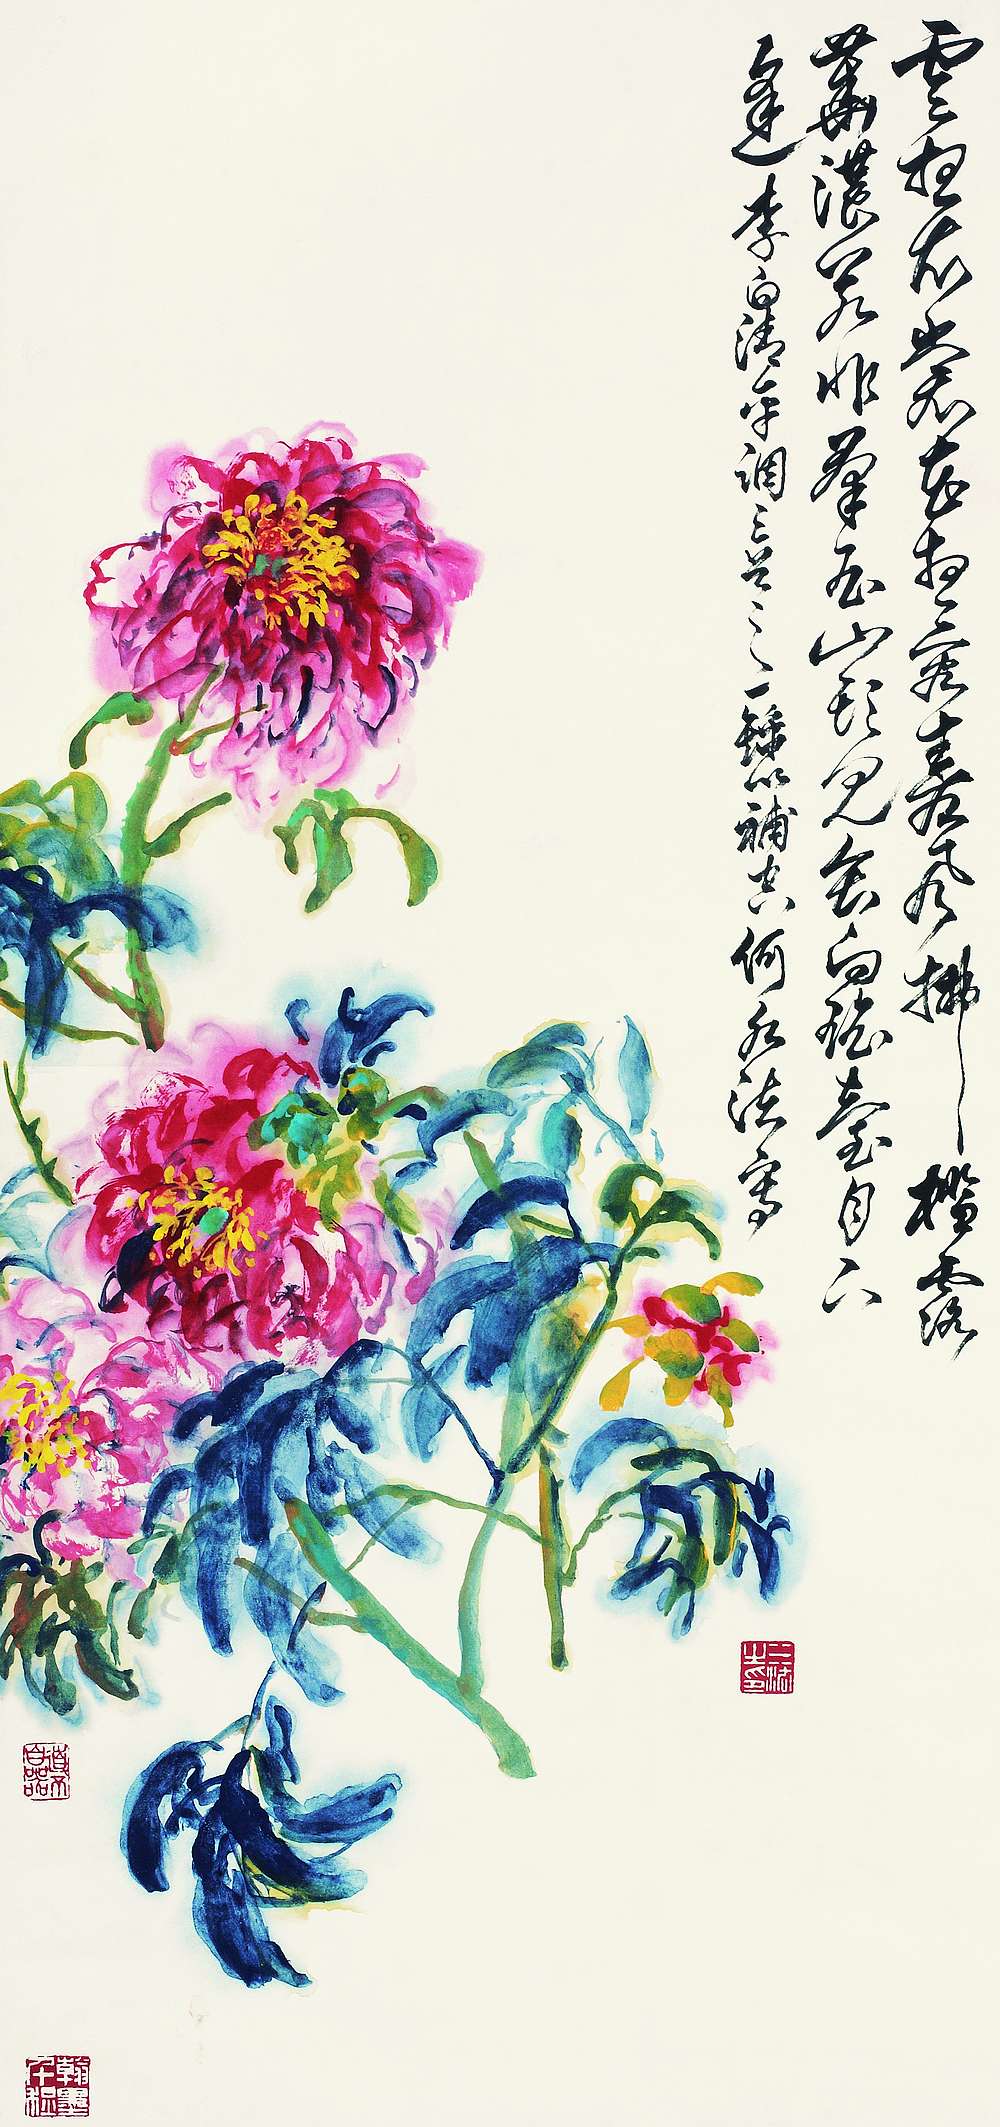 雲想衣裳花想容春風拂檻露
華濃若非羣玉山頭見會向瑤臺月下
逢李白清平調三首之一錄以補空何水法寫